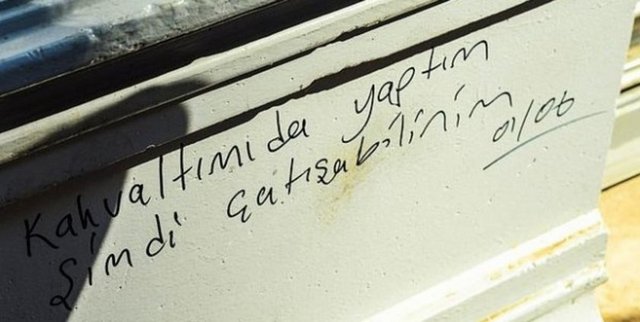 Kahvaltımıda yaptım
Şimdi çatışabilirim
01/06